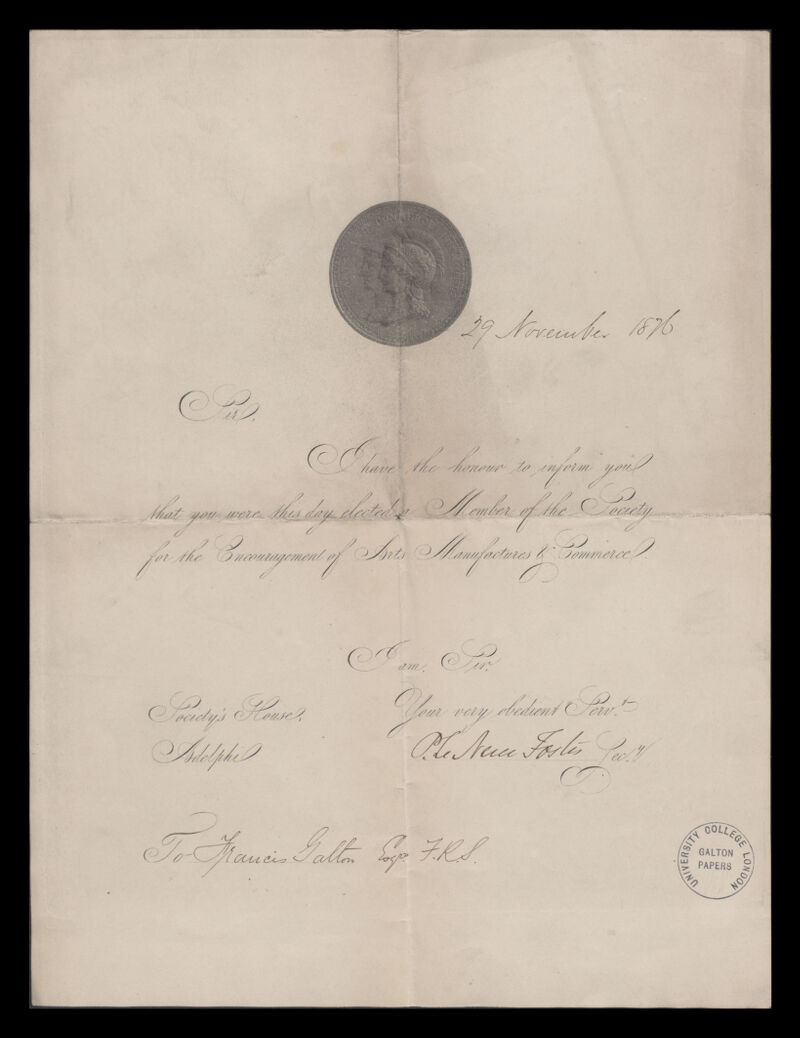 29 November 1876
Sir,
I have the honour to inform you
that you were this day elected a Member of the Society
for the Encouragement of Arts Manufactures & Commerce.
I am, Sir,
Society's House,
Adelphi
Your very obedient Servt
P. Le Neve Foster Secy
To Francis Galton Esqr F.R.S.
UNIVERSITY COLLEGE LONDON
GALTON
PAPERS